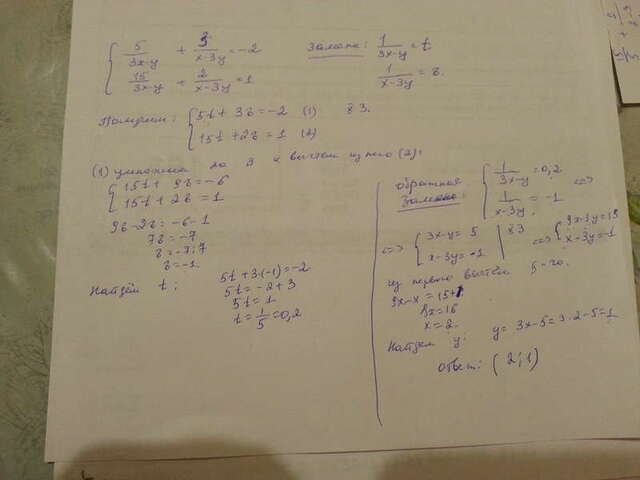 5/(3x-y) + 3/(x-3y) = -2
15/(3x-y) + 2/(x-3y) = 1
Замена: 1/(3x-y) = t
1/(x-3y) = z.
Получим: 5t + 3z = -2 (1) | 3.
15t + 2z = 1 (2)
(1) умножим на 3 и вычтем из него (2):
15t + 9z = -6
15t + 2z = 1
9z-2z = -6-1
7z = -7
z = -7:7
z = -1.
Найдём t:
5t + 3·(-1) = -2
5t = -2+3
5t = 1
t = 1/5 = 0,2
обратная
замена:
1/(3x-y) = 0,2
1/(x-3y) = -1 <=>
<=> 3x-y = 5 | ·3
x-3y = -1
<=> 9x-3y = 15
x-3y = -1
из первого вычтем
9x-x = 15+1
8x = 16
x = 2.
Найдём y: y = 3x-5 = 3·2-5 = 1
Ответ: (2; 1)